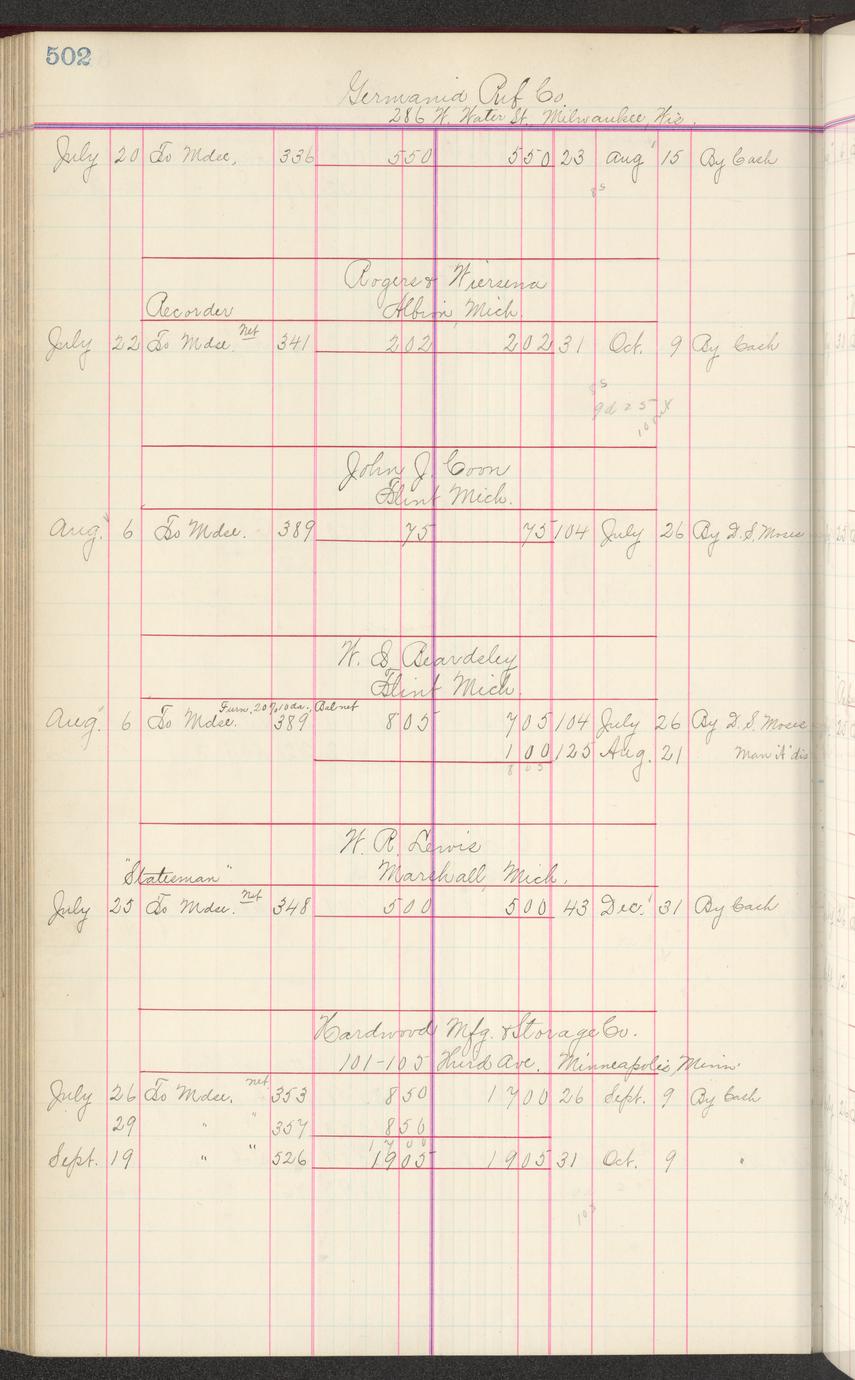 502
Germania Ref Co.
286 W. Water St, Milwaukee, Wis.
July 20 To Mdse, 336 550 550 23 Aug 15 By Cash
85
Rogers & Wiersena
Recorder Albion, Mich.
July 22 To Mdse. Net 341 202 202 31 Oct. 9 By Cash
85
John J. Coon
Flint Mich.
Aug. 6 To Mdse. 389 75 75 104 July 26 By D. S. Moses
W. S. Beardsley
Flint Mich.
Furn. 20% 10 da., Bal net
Aug. 6 To Mdse. 389 805 705 104 July 26 By D. S. Moses
100 125 Aug. 21 Man "A" dis
805
W. R. Lewis
"Statesman" Marshall, Mich.
July 25 To Mdse. Net 348 500 500 43 Dec. 31 By Cash
Hardwood Mfg. & Storage Co.
101-105 Third Ave. Minneapolis, Minn.
July 26 To Mdse. net 353 850 1700 26 Sept. 9 By Cash
29 " " 357 850
1700
Sept. 19 " " 526 1905 1905 31 Oct. 9 "